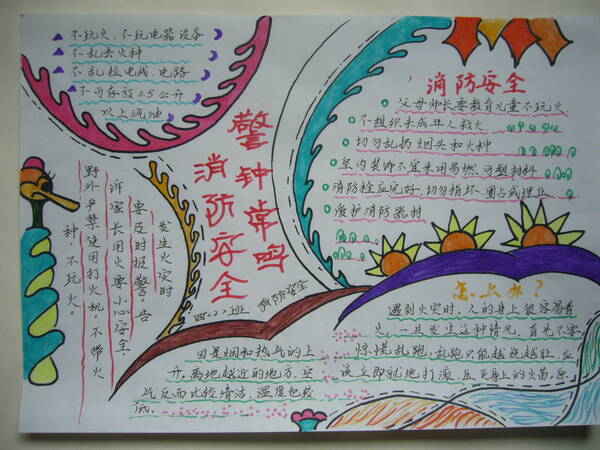 不玩火、不玩电器设备
不乱丢火种
不乱拉电线、电路
不可存放0.5公升
以上汽油
警钟常鸣
消防安全
消防安全
父母师长要教育儿童不玩火
不组织未成年人救火
切勿乱扔烟头和火种
室内装饰不宜采用易燃可塑材料
消防栓应完好、切勿损坏、圈占或埋压
爱护消防器材
发生火灾时
要及时报警。告
诉家长用火要小心安全.
野外严禁使用打火机、不带火
种,不玩火。
四(2)班
消防安全
因是烟和热气的上
升,离地越近的地方,空
气反而比较清洁,温度也较
低.
怎么办?
遇到火灾时,人的身上很容易着
火,一旦发生这种情况,首先不要
惊慌乱跑,乱跑只能越烧越旺,应
该立即就地打滚,压灭身上的火苗,